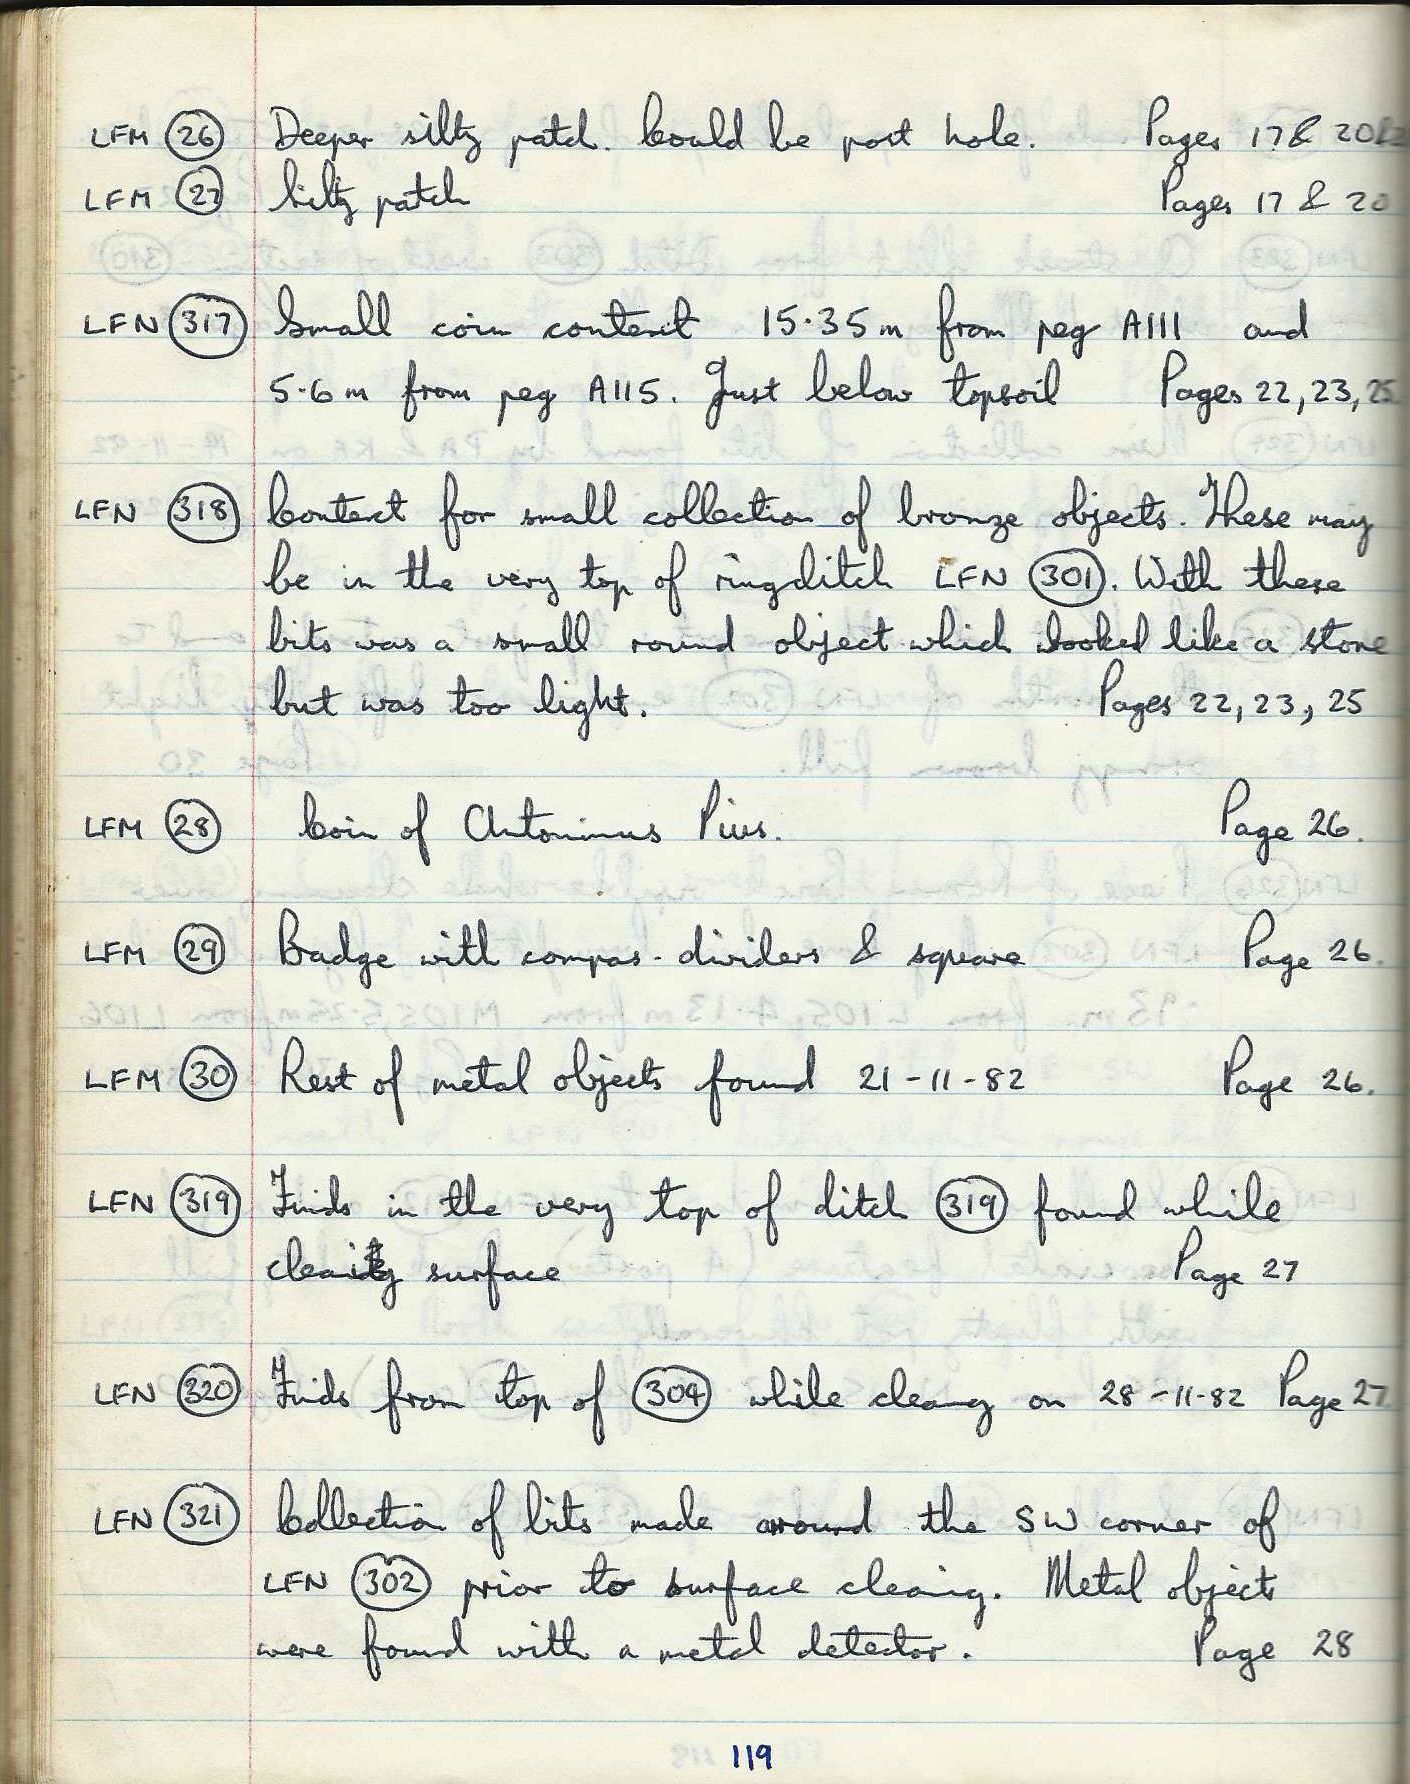 LFM (26) Deeper silty patch. Could be post hole. Pages 17 & 20
LFM (27) Silty patch Pages 17 & 20
LFN (317) Small coin context 15.35m from peg A111 and
5.6m from peg A115. Just below topsoil Pages 22, 23, 25
LFN (318) Context for small collection of bronze objects. These may
be in the very top of ringditch LFN (301). With these
bits was a small round object which looked like a stone
but was too light. Pages 22, 23, 25
LFM (28) Coin of Antoninus Pius. Page 26.
LFM (29) Badge with compas - dividers & square Page 26.
LFM (30) Rest of metal objects found 21-11-82 Page 26.
LFN (319) Finds in the very top of ditch (319) found while
surface Page 27
LFN (320) Finds from top of (304) while cleang on 28-11-82 Page 27
LFN (321) Collection of bits made around the SW corner of
LFN (302) prior to surface cleaing. Metal objects
were found with a metal detector. Page 28
119